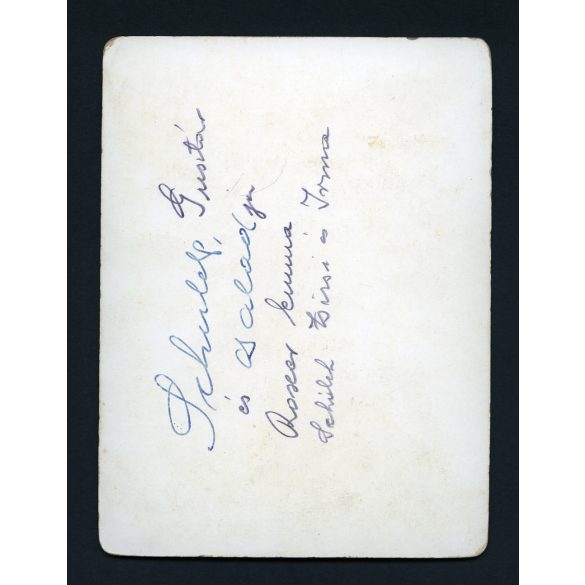 Schulek, Gusztáv
és családja
Roszer Emma
Schulek Bözsi és Irma